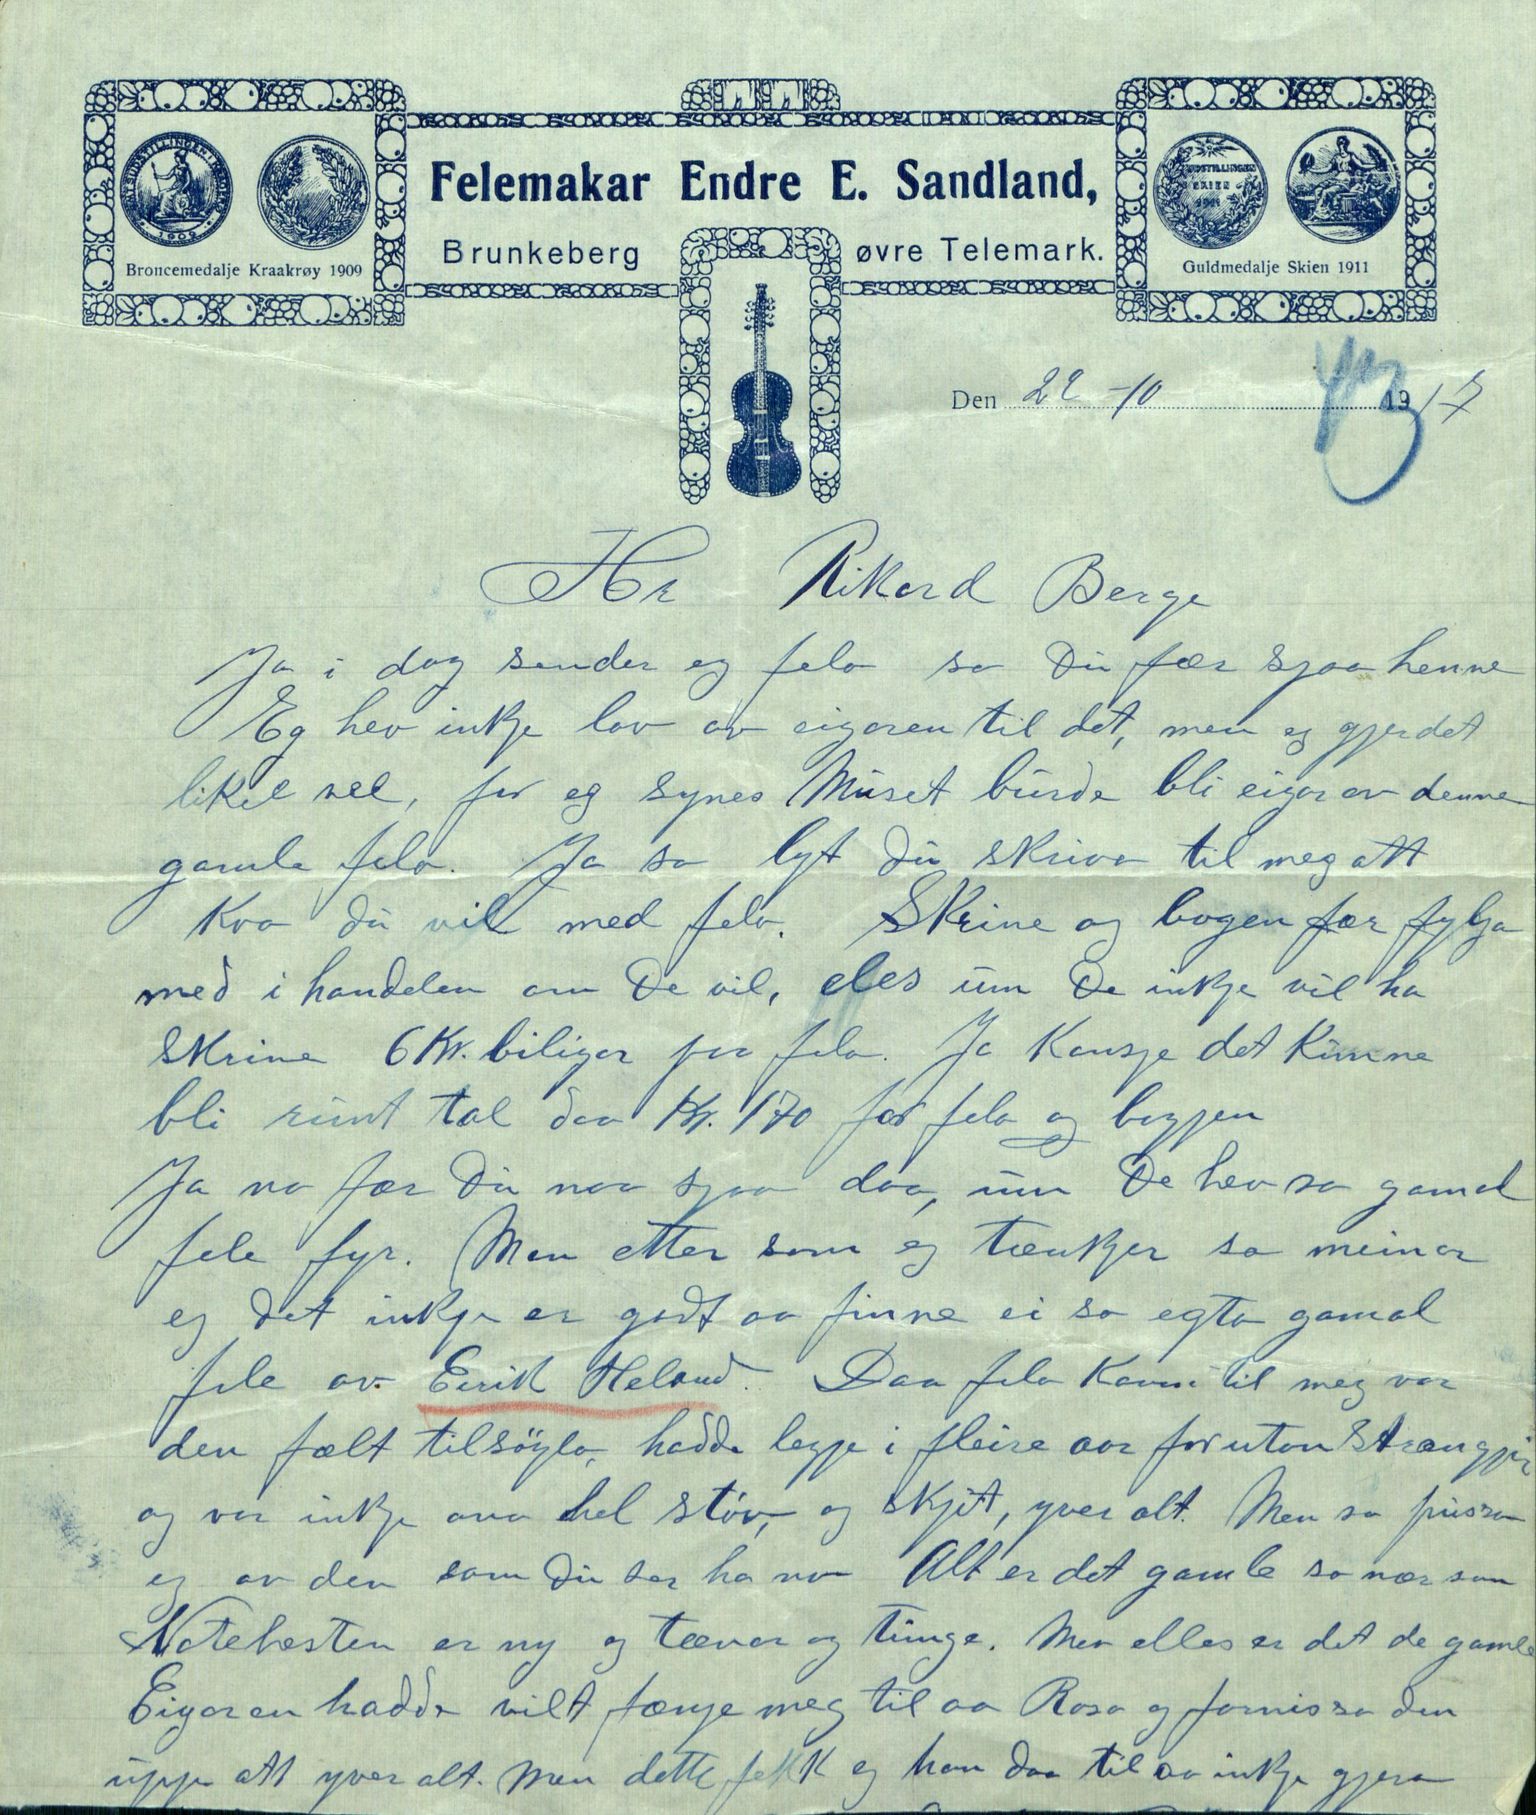 Felemakar Endre E. Sandland,
Brunkeberg øvre Telemark.
Broncemedalje Kraakrøy 1909
Guldmedalje Skien 1911
Den 22-10 1917
Hr Rikard Berge
Ja i dag sender eg fela so Du fær sjaa henne
Eg hev inkje lov av eigaren til det, men eg gjer det
likel vel, for eg synes Muset burde bli eigar av denne
gamle fela. Ja so lyt du skriva til meg att
Kva du vil med fela. Skrine og bogen fær fylgja
med i handelen om De vil, eles um De inkje vil ha
Skrine 6 Kr. biligar paa fela. Ja Kansje det Kunne
bli runt tal daa Kr. 170 for fela og bogjen
Ja no fær Du naa sjaa daa, um De hev so gamal
fele fyr. Men etter som eg tænkjer so meinar
eg det inkje er godt aa finne ei so egta gamal
fele av Eirik Heland. Daa fela Kom til meg var
den fælt tilsøyla, hadde legje i fleire aar foruton Strængjir
og var inkje ana hel støv, og skjit, yver alt. Men so pussa
eg av den som Du ser ha no Alt er det gamle so nær som
Notehesten er ny og tævar og Tunge. Men elles er det de gamle
Eigaren hadde vilt fænje meg til aa Rosa og fornissa den
uppe att yver alt. Men dette fekk eg han daa til aa inkje gjera